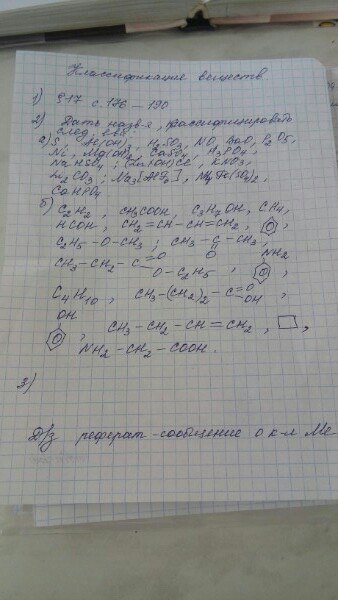 Классификация веществ.
1) §17 с. 176 – 190
2) Дать назв-я, классифицировать
след. в-ва:
а) S, Al(OH)3, H2SO3, NO, BaO, P2O5,
Ni, Mg(OH)2, CaSO4, H3PO4,
NaHSO4, (ZnOH)Cl, KNO3,
H2CO3, Na3[AlF6],
CaHPO4
б) C2H2, CH3COOH, C3H7OH, CH4,
HCOH, CH2=CH–CH=CH2,
C2H5–O–CH3; CH3–C–CH3,
O
NH2
CH3–CH2–C=O
O–C2H5,
C4H10, CH3–(CH2)2–C=O
OH
OH
CH3–CH2–CH=CH2,
NH2–CH2–COOH.
3)
Д/з реферат-сообщение о к-л Ме